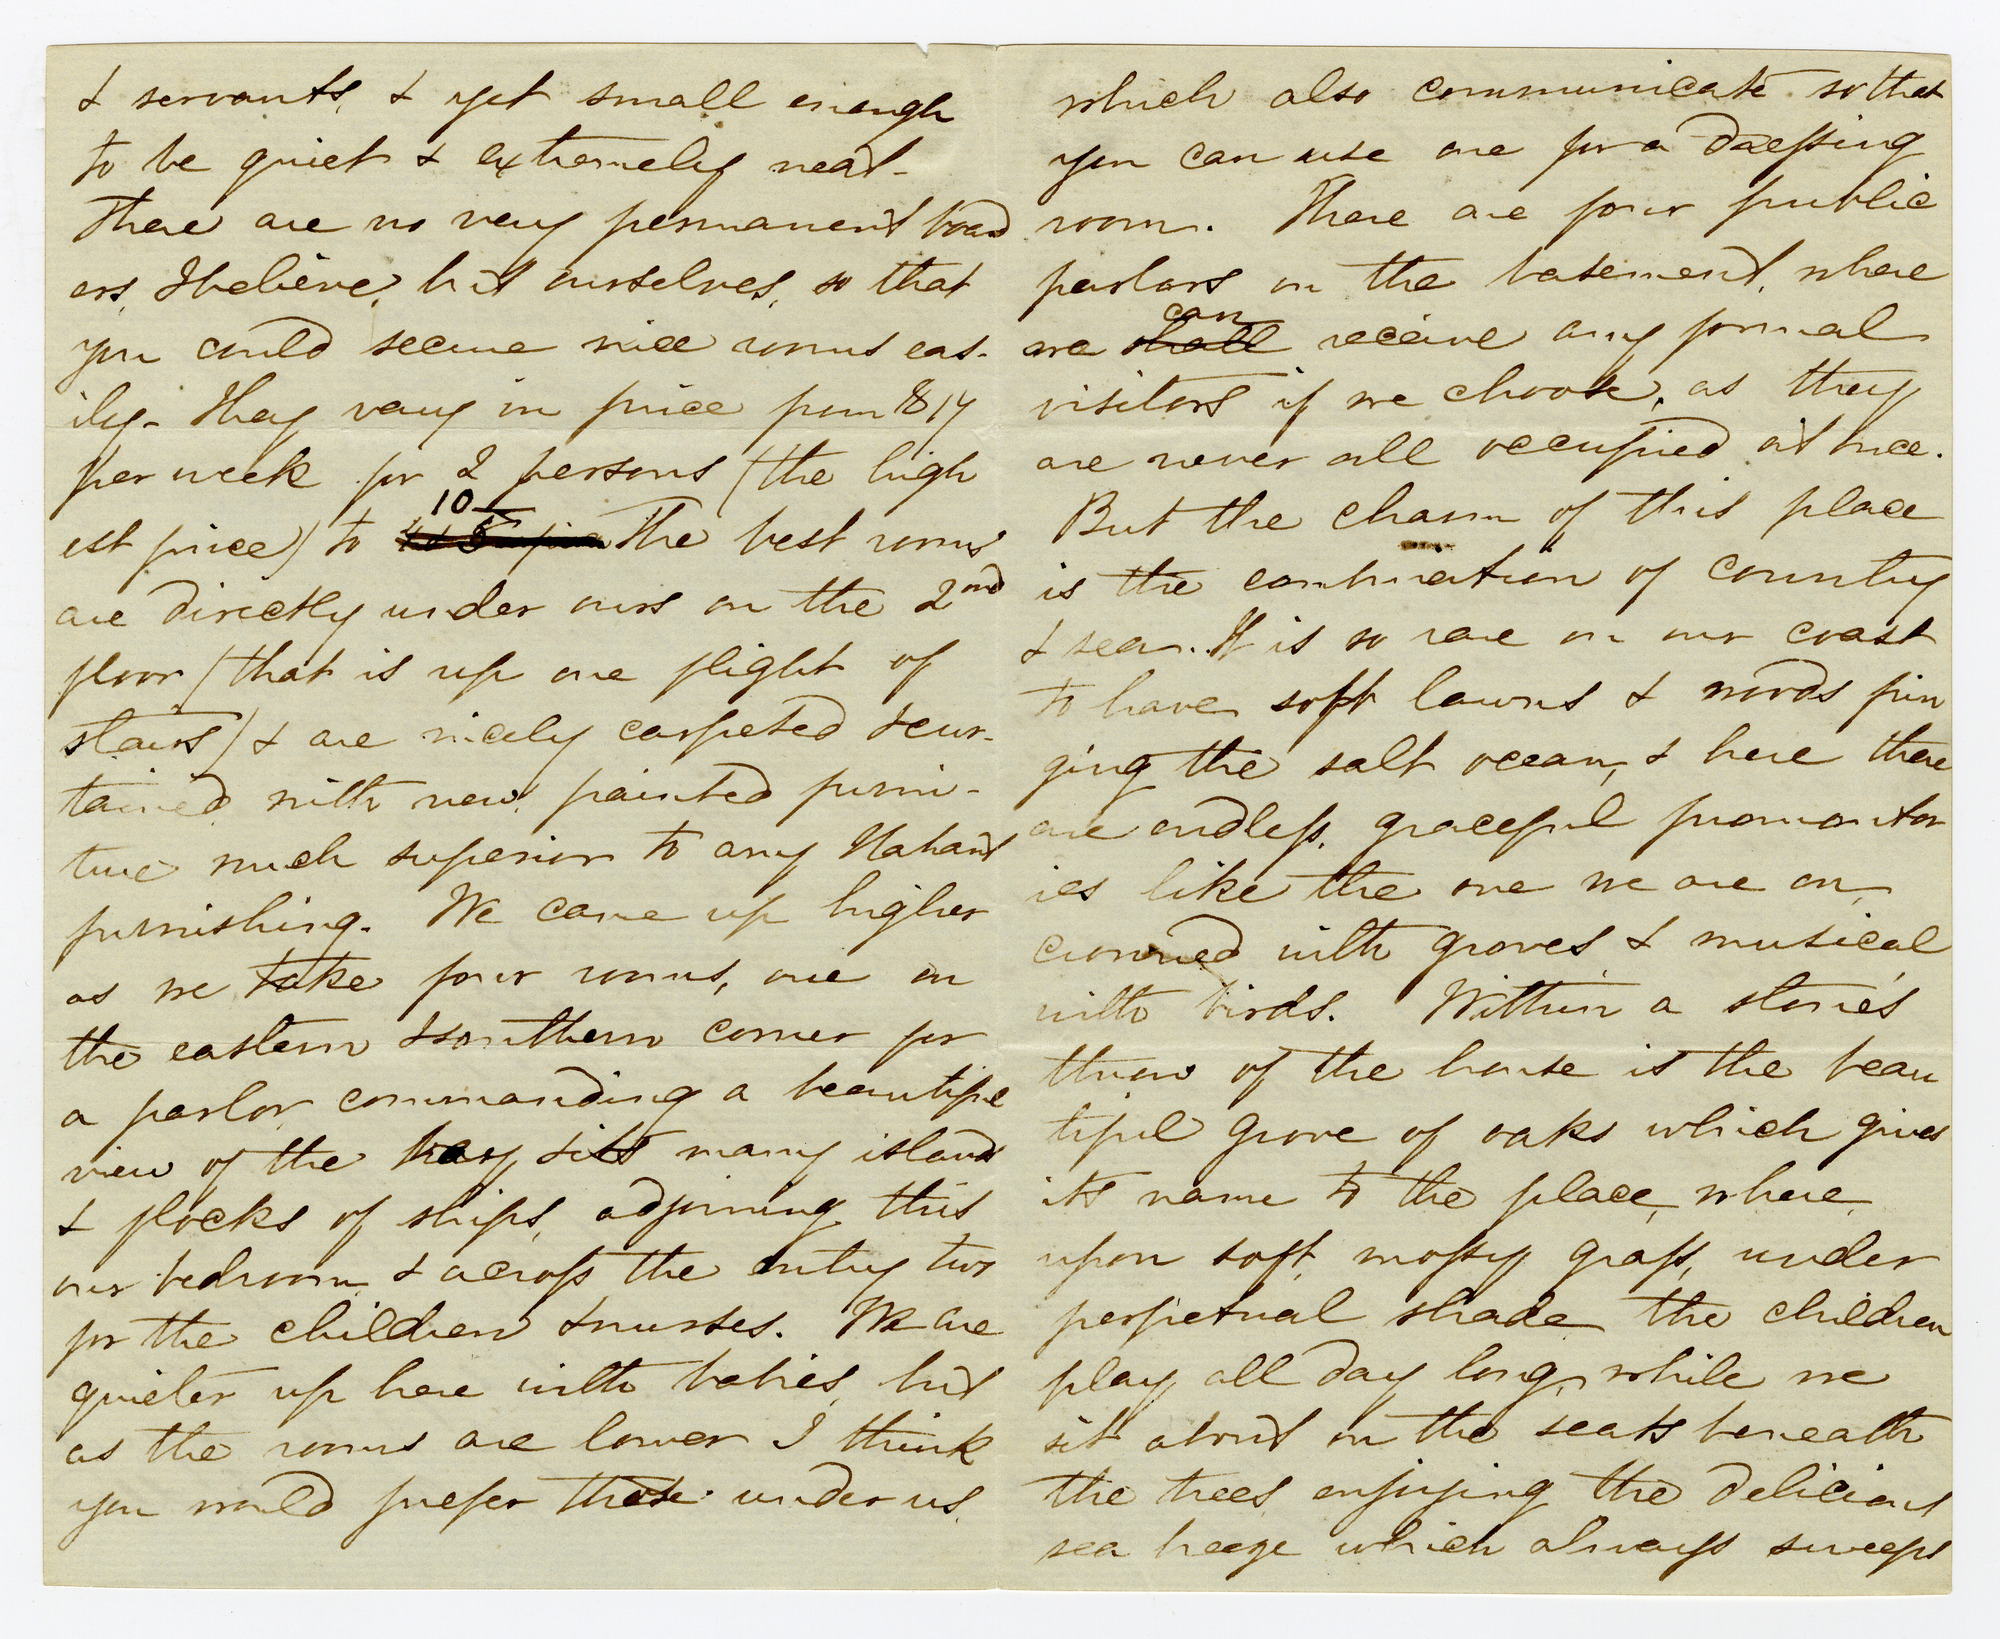 & servants, & yet small enough
to be quiet & extremely neat.
There are no very permanent board
ers, I believe, but ourselves, so that
you could secure nice rooms eas-
ily. They vary in price from $17
per week for 2 persons (the high
est price) to 10 The best rooms
are directly under ours on the 2nd
floor (that is up one flight of
stairs) & are nicely carpeted & cur-
tained with new painted furni-
ture much superior to any Nahant
furnishing. We came up higher
as we take four rooms, one on
the eastern & southern corner for
a parlor commanding a beautiful
view of the bay & its many islands
& flocks of ships, adjoining this
our bedroom & across the entry two
for the children & nurses. We are
quieter up here with babies, but
as the rooms are lower I think
you would prefer those under us,
which also communicate so that
you can use one for a dressing
room. There are four public
parlors on the basement, where
can
we shall receive any formal
visitors if we choose, as they
are never all occupied at once.
But the charm of this place
is the combination of country
& sea. It is so rare on our coast
to have soft lawns & woods frin
ging the salt ocean, & here there
are endless, graceful promontor
ies like the one we are on,
crowned with groves & musical
with birds. Within a stone's
throw of the house is the beau
tiful grove of oaks which gives
its name to the place, where,
upon soft, mossy grass, under
perpetual shade the children
play all day long, while we
sit about on the seats beneath
the trees, enjoying the delicious
sea breeze which always sweeps